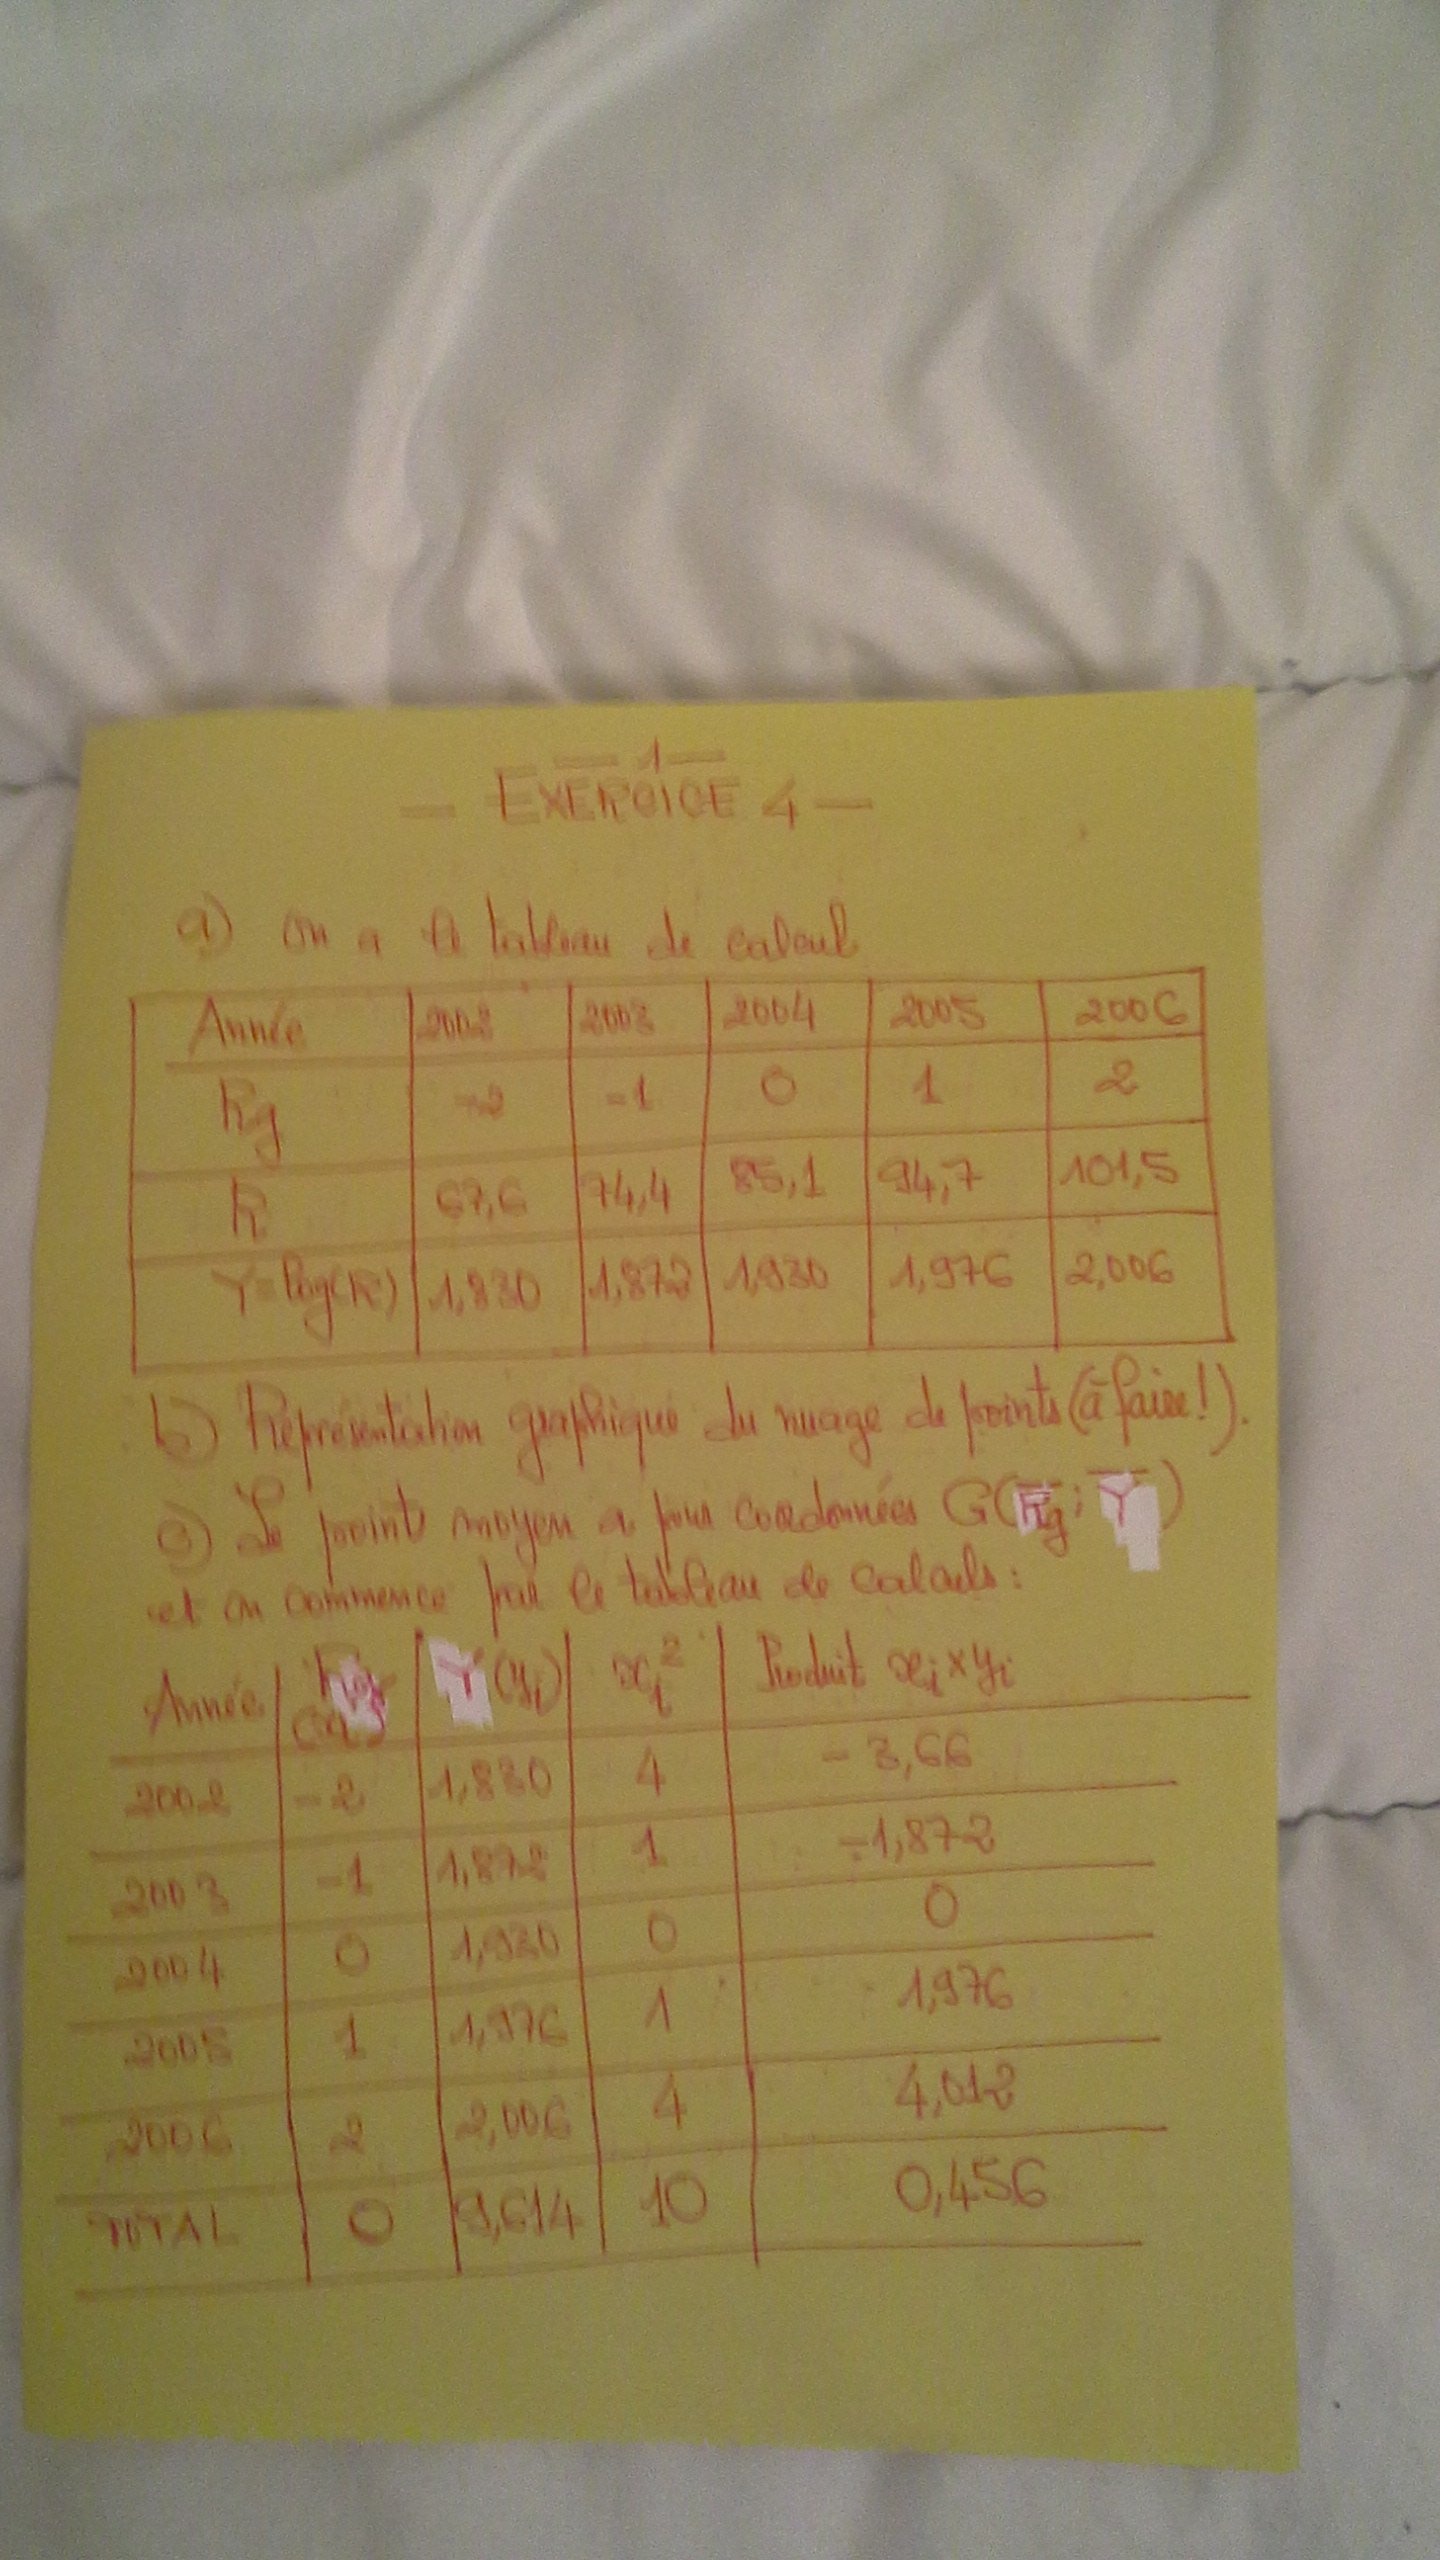 — 1 —
— EXERCICE 4 —
a) on a le tableau de calcul
Année 2002 2003 2004 2005 2006
Rg -2 -1 0 1 2
R 67,6 74,4 85,1 94,7 101,5
Y=log(R) 1,830 1,872 1,930 1,976 2,006
b) Représentation graphique du nuage de points (à faire!).
c) Le point moyen a pour coordonnées G(Rg; Y)
et on commence par le tableau de calculs:
Année Y (yi) xi² Produit xi×yi
2002 -2 1,830 4 -3,66
2003 -1 1,872 1 -1,872
2004 0 1,930 0 0
2005 1 1,976 1 1,976
2006 2 2,006 4 4,012
TOTAL 0 9,614 10 0,456